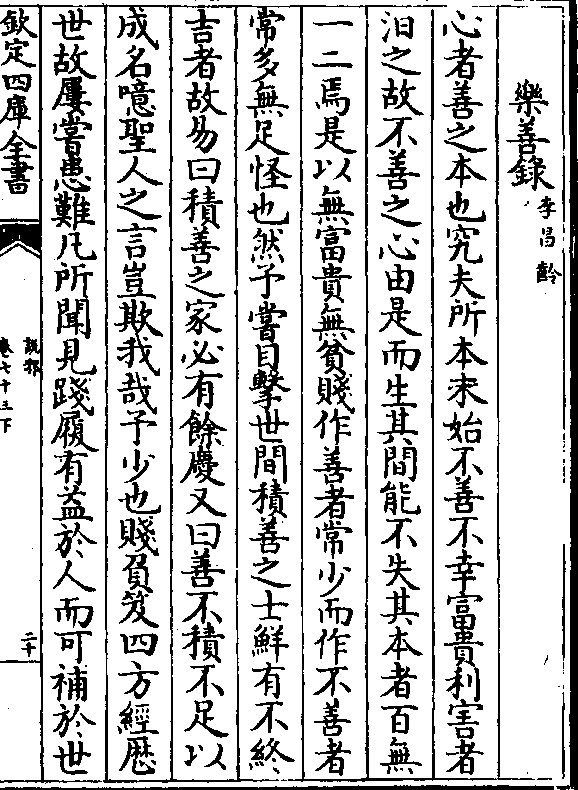 樂善錄 李昌齡
心者善之本也究夫所本未始不善不幸富貴利害者
汨之故不善之心由是而生其間能不失其本者百無
一二焉是以無富貴無貧賤作善者常少而作不善者
常多無足怪也然予嘗目擊世間積善之士鮮有不終
吉者故易曰積善之家必有餘慶又曰善不積不足以
成名噫聖人之言豈欺我哉予少也賤負笈四方經歷
世故屢嘗患難凡所聞見踐履有益於人而可補於世
欽定四庫全書
說郛
卷七十三下
二十